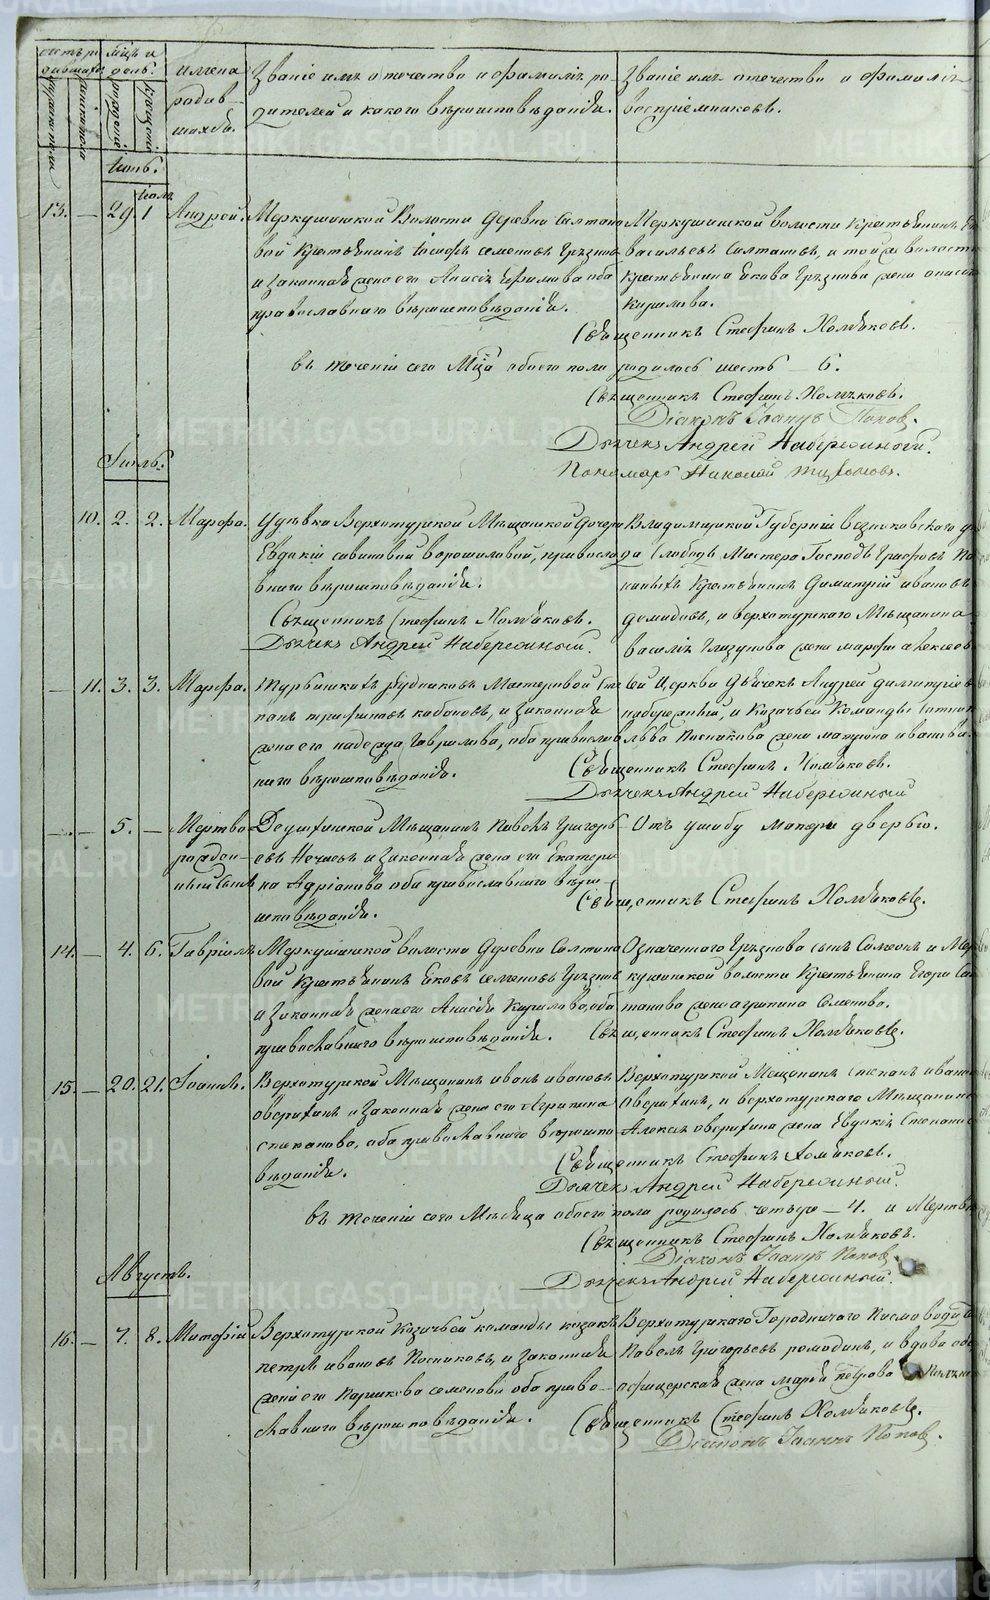 счетъ ро
дившихся
мужеска
женска
мѣсц и
день.
рожденія
крещенія
имена
родив-
шихся.
Званіе имя отечество и фамилія ро-
дителей и какого вѣроисповѣданія.
Званіе имя отечество и фамилія
воспріемниковъ.
Іюнь.
Іюля
13. — 29. 1 Андрей. Меркушинской Волости Деревни Салтано
вой Крестьянинъ Іосифъ семеновъ Грѣзнов
и законная жена его Анисія Ефимова оба
православнаго вѣроисповѣданія.
Меркушинской волости Крестьянинъ
васильевъ Салтановъ, и той же волости
крестьянина Якова Грѣзнова жена анисія
Кирилова.
Священникъ Стефанъ Холмаковъ.
въ теченіи сего Мсца обоего пола родилось шесть — 6.
Священникъ Стефанъ Холмаковъ.
Діаконъ Іоаннъ Попов.
Дьячекъ Андрей Набережный.
Пономарь Николай Тихоновъ.
Іюль.
10. 2. 2. Марфа. У дѣвки Верхотурской Мѣщанской Дочери
Евдокіи савиновой ворошиловой, правосла
внаго вѣроисповѣданія.
Священникъ Стефанъ Холмаковъ.
Дьячекъ Андрей Набережный.
Владимирской Губерніи вязниковскаго
да слободы Мстера Господъ Графовъ Па
ниныхъ Крестьянинъ Димитрій ивановъ
демидовъ, и верхотурскаго Мѣщанина
василія Глазунова жена марфа алексеев
— 11. 3. 3. Марфа. Турьинскихъ рудниковъ Мастеровой Сте
панъ трифоновъ кабановъ, и законная
жена его надежда Гаврилова, оба православ
наго вѣроисповѣданія.
сей Церкви Дьячекъ Андрей димитріевъ
набережный, и Казачьей Команды Сотника
Львва Посникова жена матрона иванова.
Священникъ Стефанъ Холмаковъ.
Дьячекъ Андрей Набережный
— — 5. — Мертво
рожден-
ный сынъ
Деушинской Мѣщанинъ Павелъ Григорь
евъ Нечаевъ и законная жена его Екатери
на Адріанова оба православнаго вѣро-
исповѣданія.
Отъ ушибу матери дверью.
Священникъ Стефанъ Холмаковъ.
14. — 4. 6. Гавріилъ Меркушинской волости Деревни Салтано
вой Крестьянинъ Яковъ семеновъ Грѣзнов
и законная жена его Анисія Кирилова, оба
православнаго вѣроисповѣданія.
Означеннаго Грѣзнова сынъ Симеонъ и Мер
кушинской волости Крестьянина Егора Сал
танова жена агрипина Семенова.
Священникъ Стефанъ Холмаковъ.
15. — 20. 21. Іоаннъ. Верхотурской Мѣщанинъ иванъ ивановъ
аверихинъ и законная жена его Агрипина
степанова, оба православнаго вѣроиспо
вѣданія.
Верхотурской Мещанинъ степанъ иван
Аверихинъ, и верхотурскаго Мѣщанина
Алексея аверихина жена Евдокія Степан
Священникъ Стефанъ Холмаковъ.
Дьячекъ Андрей Набережный.
въ теченіи сего Мѣсяца обоего пола родилось четыре — 4. и Мертв
Священникъ Стефанъ Холмаковъ.
Діаконъ Іоаннъ Попов.
Дьячекъ Андрей Набережный.
Августъ.
16. — 7. 8. Матфій Верхотурской Казачьей команды казакъ
петръ ивановъ Посниковъ, и законная
жена его Парасковья семенова оба право-
славнаго вѣроисповѣданія.
Верхотурскаго Городничаго Писмоводит
Павелъ Григорьевъ ромодинъ, и вдова обе
рофицерская жена марья петрова
Священникъ Стефанъ Холмаковъ.
Діаконъ Іоаннъ Попов.
METRIKI.GASO-URAL.RU